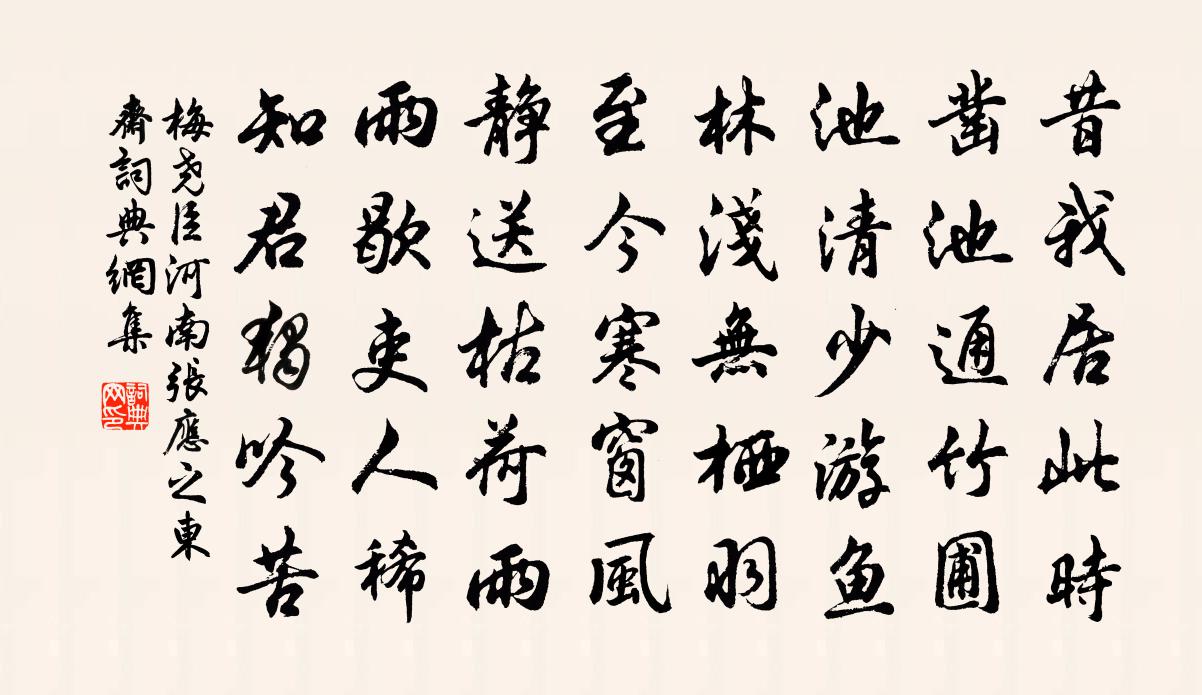 昔我居此時
鑿池通竹圃
池清少游魚
林淺無栖羽
至今寒窗風
静送枯荷雨
雨歇吏人稀
知君獨吟苦
梅尧臣河南張應之東
齋詞典網集
詞典網印